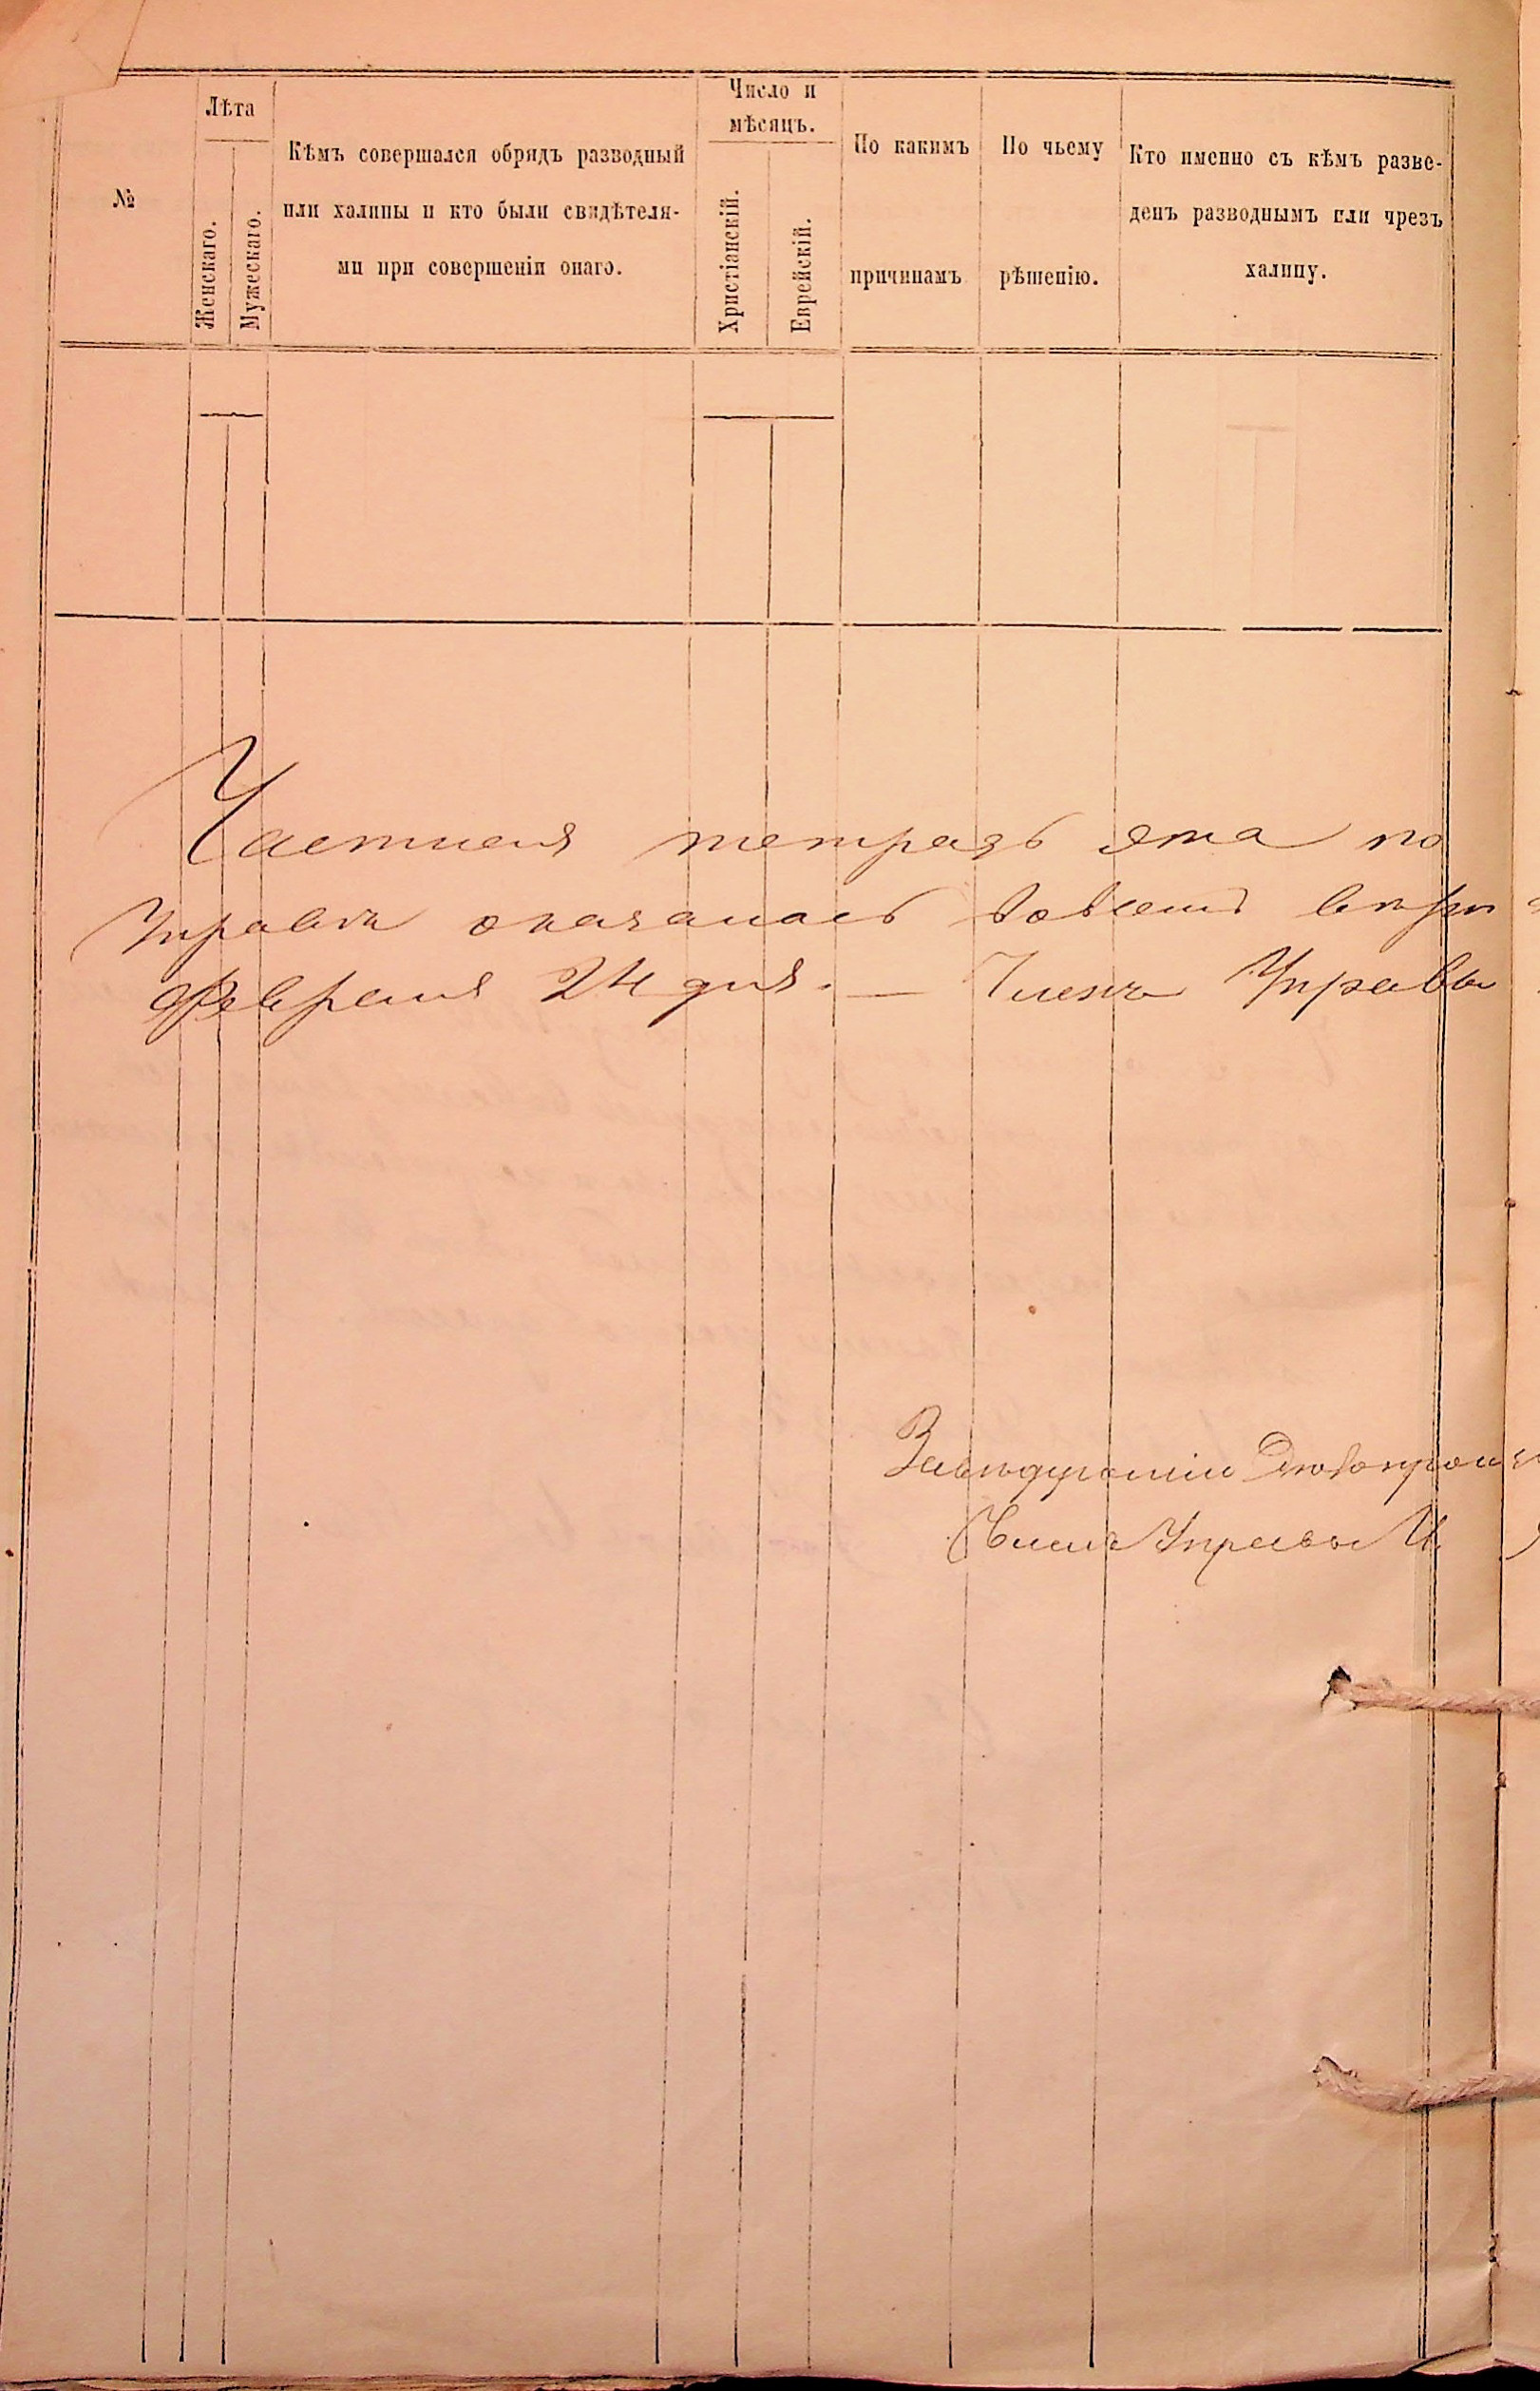 №
Лѣта
Женскаго.
Мужескаго.
Кѣмъ совершался обрядъ разводный
или халицы и кто были свидѣтеля-
ми при совершеніи онаго.
Число и
мѣсяцъ.
Христіанскій.
Еврейскій.
По какимъ
причинамъ
По чьему
рѣшенію.
Кто именно съ кѣмъ разве-
денъ разводнымъ или чрезъ
халицу.
Частная тетрадь эта по
Управѣ оказалась
Февраля 24 дня. — Членъ Управы
Завѣдующій
Членъ Управы И.